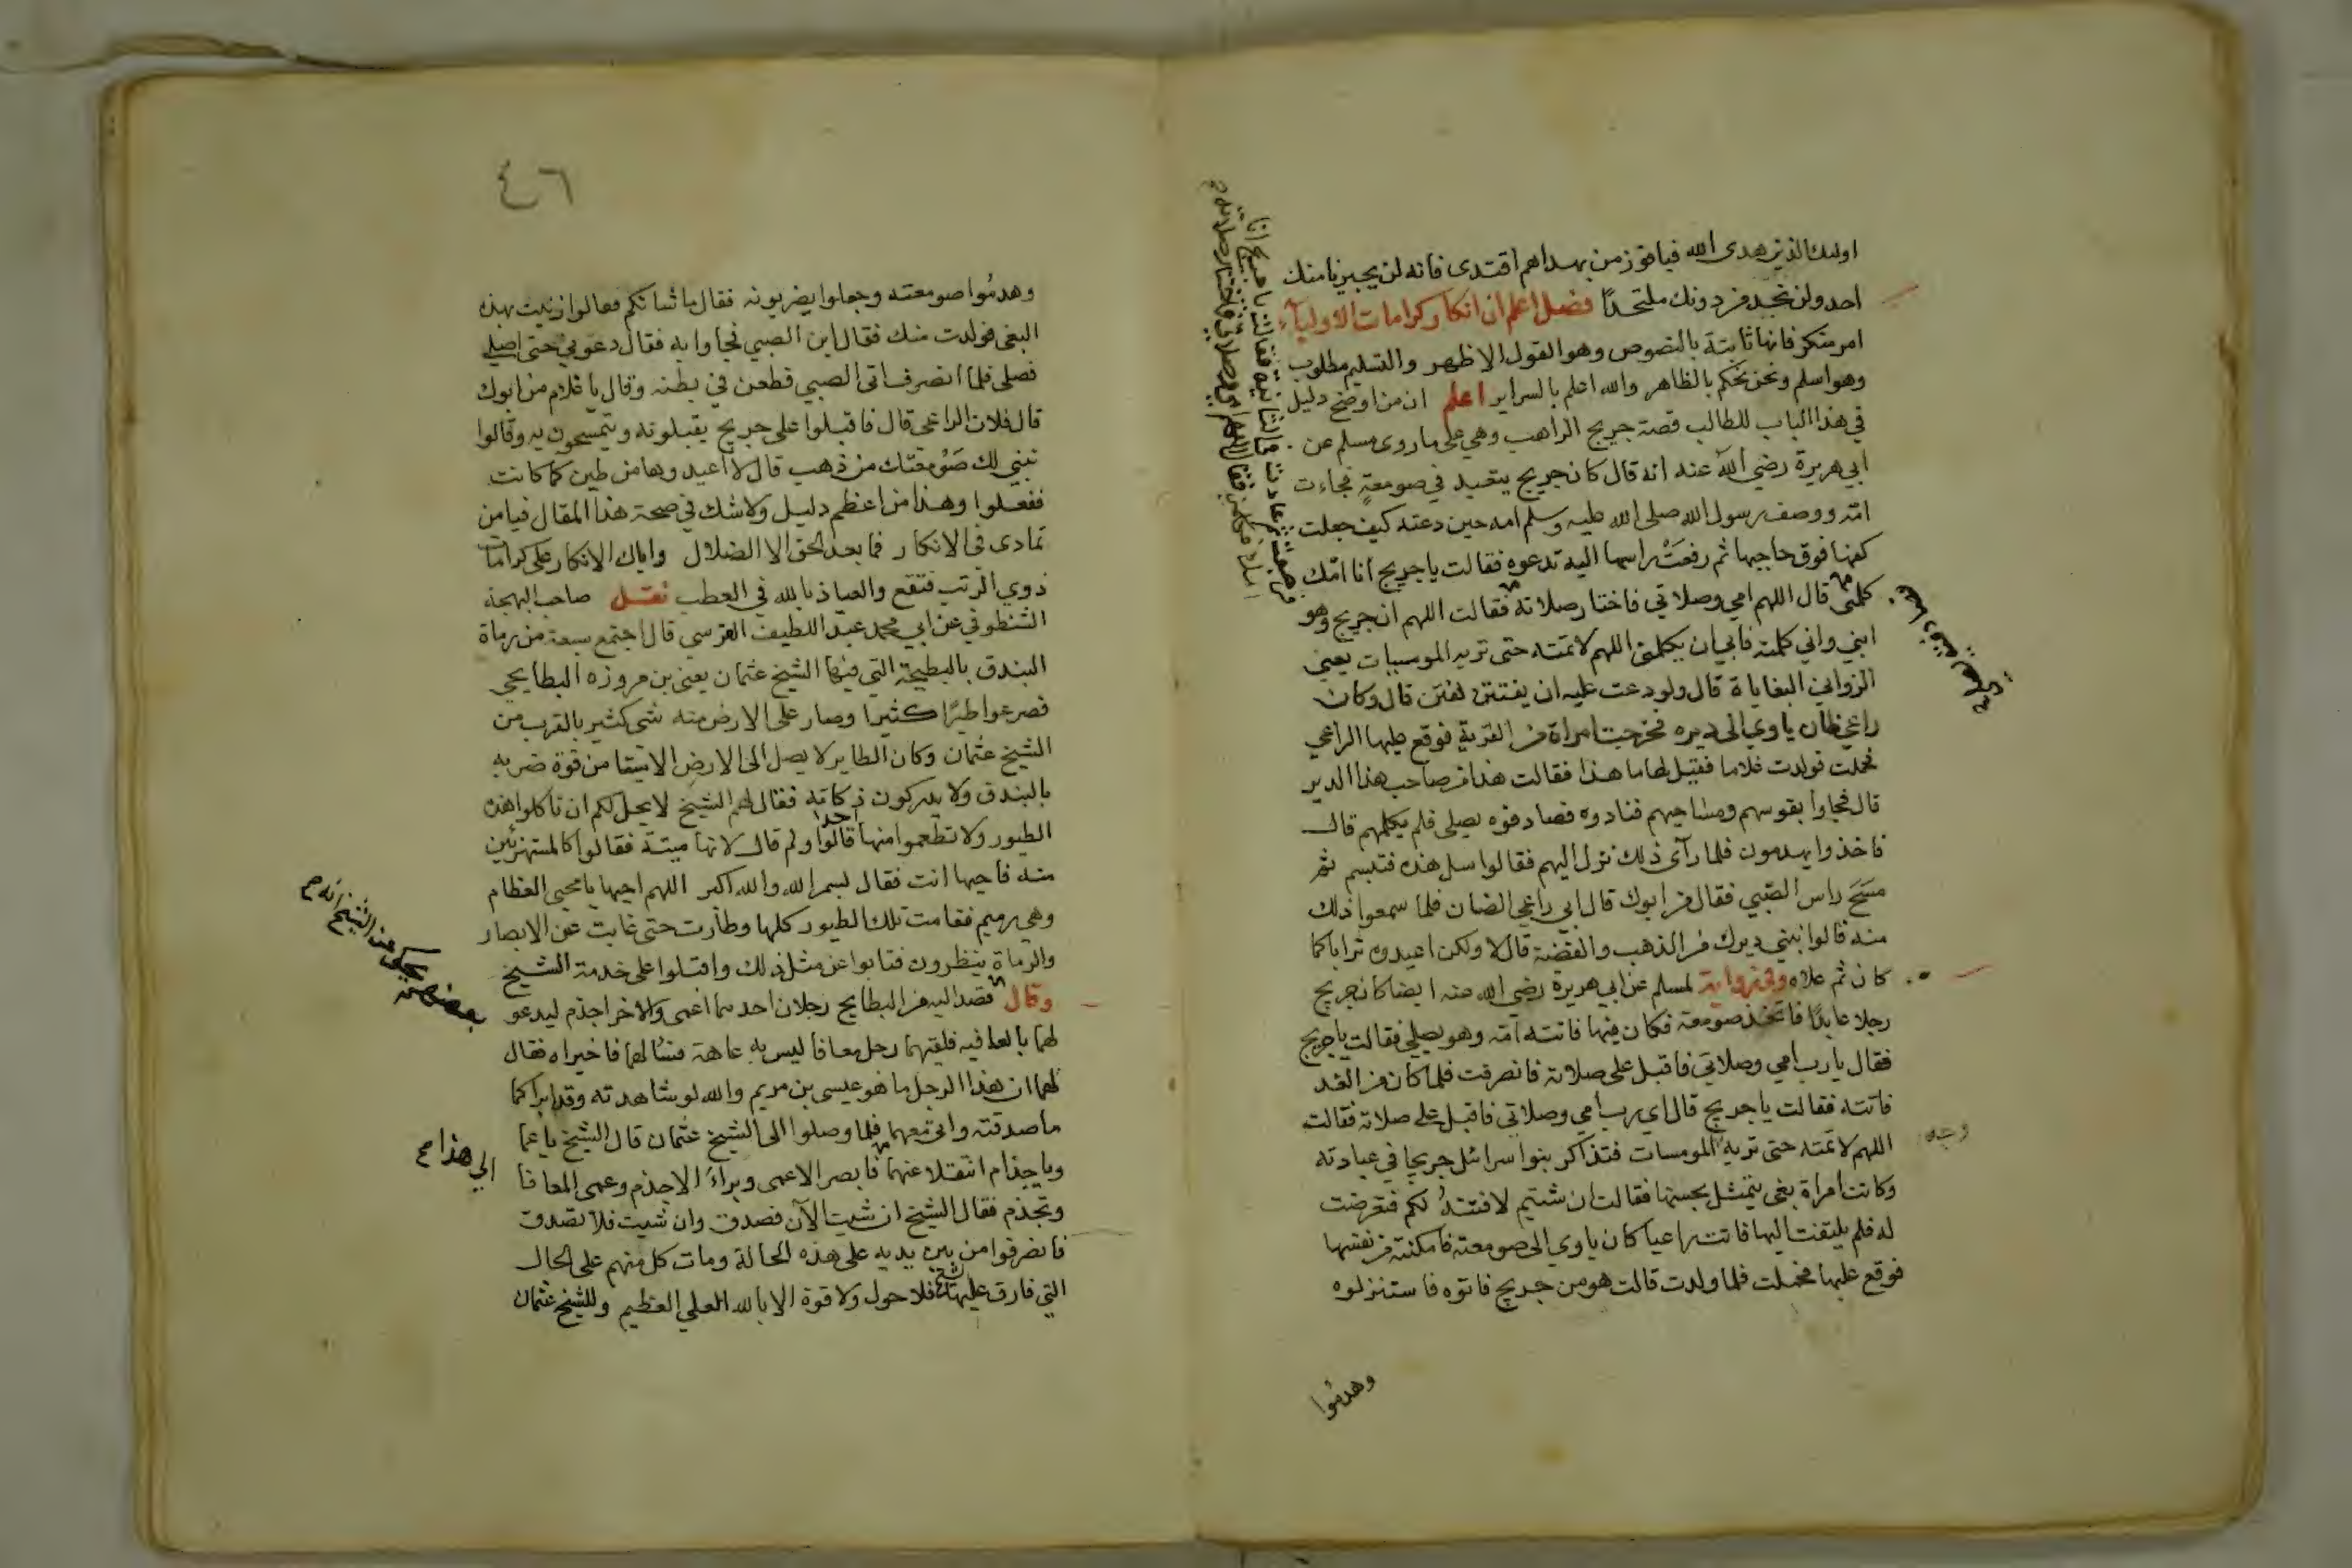 اوليك الذين هدى الله فيا فوز من بهداهم اقتدى فانه لن يجيرنا منك
احد ولن نجد من دونك ملتحدًا فصل اعلم ان انكار كرامات الاولياء
امر منكر فانها ثابتة بالنصوص وهو القول الاظهر والتسليم مطلوب
وهو اسلم ونحن نحكم بالظاهر والله اعلم بالسراير اعلم ان من اوضح دليل
في هذا الباب للطالب قصة جريج الراهب وهي على ما روى مسلم عن
ابي هريرة رضي الله عنه انه قال كان جريج يتعبد في صومعةٍ فجاءت
امّه ووصف رسول الله صلى الله عليه وسلم امه حين دعته كيف جعلت
كفها فوق حاجبها ثم رفعَتْ راسها اليه تدعوه فقالت يا جريج انا امّك
كلمني قال اللهم امي وصلاتي فاختار صلاته فقالت اللهم ان جريج وهو
ابني واني كلمته فابى ان يكلمني اللهم لا تمته حتى تريه الموسيات يعني
الزواني البغاياة قال ولو دعت عليه ان يفتتن لفتن قال وكان
راعي ظان ياوي الى ديره فخرجت امراة من القرية فوقع عليها الراعي
فحملت فولدت غلاما فقيل لها ما هذا فقالت هذا من صاحب هذا الدير
قال فجاوا بفوسهم ومساحيهم فنادوه فصادفوه يصلي فلم يكلمهم قال
فاخذوا يهدمون فلما رآى ذلك نزل اليهم فقالوا سل هذه فتبسم ثم
مسَحَ راس الصّبي فقال من ابوك قال ابي راعي الضان فلما سمعوا ذلك
منه قالوا نبني ديرك من الذهب والفضة قال لا ولكن اعيدوه ترابا كما
كان ثم علاه وفي رواية لمسلم عن ابي هريرة رضي الله عنه ايضا كان جريج
رجلا عابدًا فاتخذ صومعة فكان فيها فاتته امّه وهو يصلي فقالت يا جريج
فقال يا رب امي وصلاتي فاقبل على صلاته فانصرفت فلما كان من الغد
فاتته فقالت يا جريج قال اي رب امي وصلاتي فاقبل على صلاته فقالت
اللهم لا تمته حتى تريه المومسات فتذاكر بنوا سرائل جريجا في عبادته
وكانت امراة بغي يتمثل بحسنها فقالت ان شيتم لافتنهُ لكم فتعرضت
له فلم يلتفت اليها فاتت راعيا كان ياوي الى صومعته فامكنته من نفسها
فوقع عليها فحملت فلما ولدت قالت هو من جريج فاتوه فاستنزلوه
وهدمُوا
٤٦
وهدمُوا صومعته وجعلوا يضربونه فقال ما شانكم فقالوا زنيت بهذه
البغي فولدت منك فقال اين الصبي فجاوا به فقال دعوني حتى اصلي
فصلى فلما انصرف اتى الصبي فطعن في بطنه وقال يا غلام من ابوك
قال فلان الراعي قال فاقبلوا على جريج يقبلونه ويتمسحون به وقالوا
نبني لك صَوْمعتك من ذهب قال لا اعيدوها من طين كما كانت
ففعلوا وهذا من اعظم دليل ولا شك في صحة هذا المقال فيا من
تمادى في الانكار فما بعد الحق الا الضلال واياك الانكار على كرامات
ذوي الرتب فتقع والعياذ بالله في العطب نقل صاحب البهجة
الشنطوفي عن ابي محمد عبد اللطيف القرسي قال اجتمع سبعة من رماة
البندق بالبطيحة التي فيها الشيخ عثمان يعني بن مروزه البطايحي
فصرعوا طيرًا كثيرا وصار على الارض منه شي كثير بالقرب من
الشيخ عثمان وكان الطاير لا يصل الى الارض الا ميتا من قوة ضربه
بالبندق ولا يدركون ذكاته فقال لهم الشيخ لا يحل لكم ان تاكلوا هذه
الطيور ولا تطعموا منها احدا قالوا ولم قال لانها ميتة فقالوا كالمستهزئين
منه فاحيها انت فقال بسم الله والله اكبر اللهم احيها يا محيي العظام
وهي رميم فقامت تلك الطيور كلها وطارت حتى غابت عن الابصار
والرماة ينظرون فتابوا عن مثل ذلك واقبلوا على خدمة الشيخ
وقال قصد اليه من البطايح رجلان احدهما اعمى والاخر اجذم ليدعو
لهما بالعافيه فلقيهما رجل معافا ليس به عاهة فسالهما فاخبراه فقال
لهما ان هذا الرجل ما هو عيسى بن مريم والله لو شاهدته وقد ابراكما
ما صدقته واتى معهما فلما وصلوا الى الشيخ عثمان قال الشيخ يا عما
ويا جذام انتقلا عنهما فابصر الاعمى وبراء الاجذم وعمى المعافا
وتجذم فقال الشيخ ان شيت الآن فصدق وان شيت فلا تصدق
فانصرفوا من بين يديه على هذه الحالة ومات كل منهم على الحال
التي فارق عليها الشيخ فلا حول ولا قوة الا بالله العلي العظيم وللشيخ عثمان
الى هذا صح